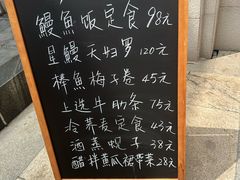 鳗魚饭定食 98元
星鳗天妇罗 120元
棒魚梅子卷 45元
上选牛肋条 75元
冷荞麦定食 43元
酒蒸蚬子 38元
醋拌黄瓜裙带菜 28元